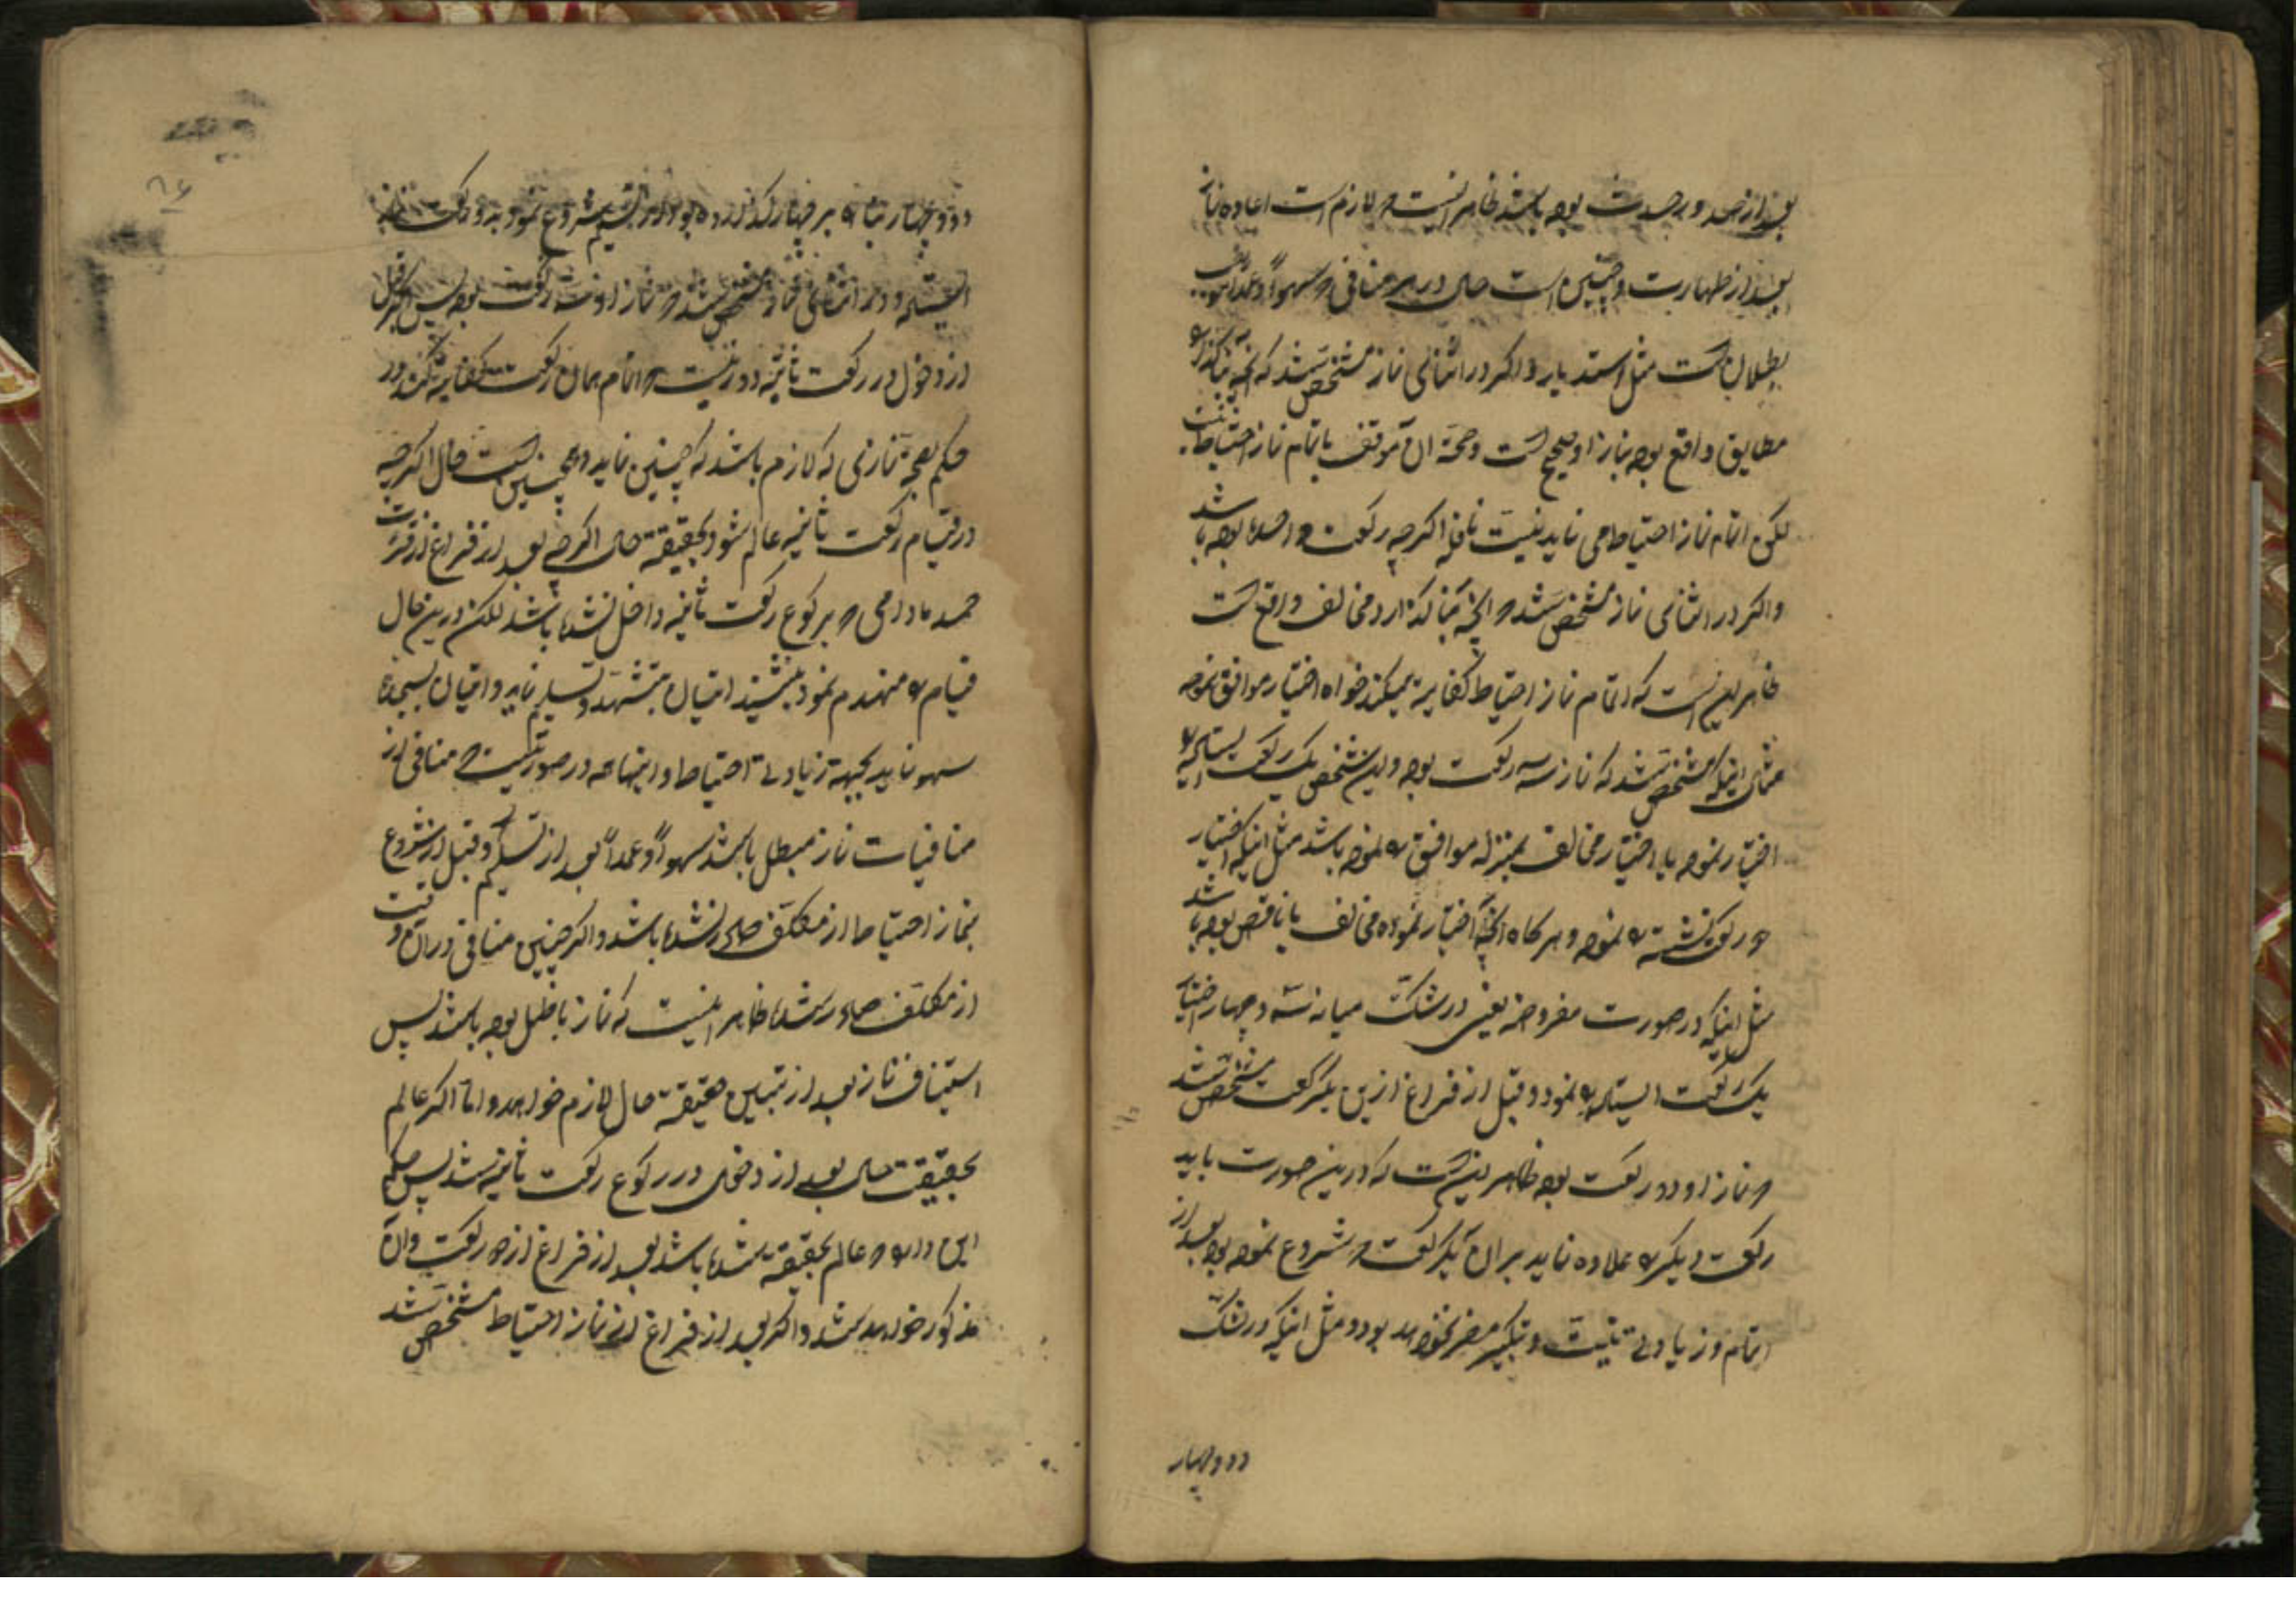 بعد از صدور حدث بوده باشد ظاهر اینست که لازم است اعاده نماز
بعد از طهارت و چنین است حال در هر منافی که سهواً و عمداً موجب
بطلان است مثل استدبار و اگر در اثنای نماز مشخص شد که آنچه بنا گذارده
مطابق واقع بوده نماز او صحیح است و صحة آن موقوف باتمام نماز احتیاط نیست
لکن اتمام نماز احتیاط می نماید بنیت نافله اگرچه رکعت واحده بوده باشد
و اگر در اثنای نماز مشخص شد که آنچه بنا گذارده مخالف واقع است
ظاهر این است که اتمام نماز احتیاط کفایة میکند خواه اختیار موافق نموده
مثل اینکه مشخص شد که نماز سه رکعت بوده و این شخص یک رکعت ایستاده را
اختیار نموده یا اختیار مخالف بمنزله موافق را نموده باشد مثل اینکه اختیار
دو رکعت نشسته را نموده و هر گاه آنچه اختیار نموده مخالف یا ناقص بوده باشد
مثل اینکه در صورت مفروضه یعنی در شک میانه سه و چهار اختیار
یک رکعت ایستاده را نمود و قبل از فراغ ازین یکرکعت مشخص شد
که نماز او دو رکعت بوده ظاهر اینست که درین صورت باید
رکعت دیگر را علاوه نماید بر آن یکرکعت که شروع نموده بود بعد از
اتمام و زیادتی نیت و تکبیر مضر نخواهد بود و مثل اینکه در شک
دو و چهار
دو و چهار بنا را بر چهار گذارده بود و بعد از تسلیم شروع نمود بدو رکعت نماز
ایستاده و در اثنای نماز مشخص شد که نماز او سه رکعت بوده پس اگر قبل
از دخول در رکعت ثانیه دور نیست که اتمام همان رکعت کفایة کند در
حکم بصحة نمازی که لازم باشد که چنین نماید و همچنین است حال اگرچه
در قیام رکعت ثانیه عالم شود بحقیقة حال اگرچه بعد از فراغ از قرائت
حمد مادامی که برکوع رکعت ثانیه داخل نشده باشد لکن درین حال
قیام را منهدم نموده بنشیند اتیان بتشهد و تسلیم نماید و اتیان بسجده
سهو نماید بجهة زیادتی احتیاط و اینها همه در صورتیست که منافی از
منافیات نماز مبطل باشد سهواً و عمداً بعد از تسلیم و قبل از شروع
بنماز احتیاط از مکلف صادر نشده باشد و اگر چنین منافی در آن وقت
از مکلف صادر شده ظاهر اینست که نماز باطل بوده باشد پس
استیناف نماز بعد از تبیین حقیقة حال لازم خواهد و اما اگر عالم
بحقیقت حال بعد از دخول در رکوع رکعت ثانیه شد پس حکم
این دارد که عالم بحقیقة شده باشد بعد از فراغ از دو رکعت و آن
مذکور خواهد شد و اگر بعد از فراغ از نماز احتیاط مشخص شد